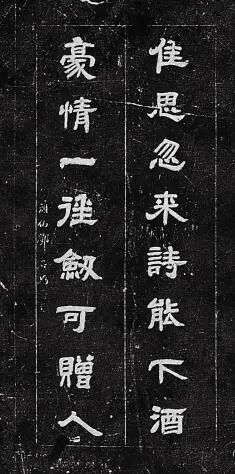 佳思忽來詩能下酒
豪情一往劔可贈人